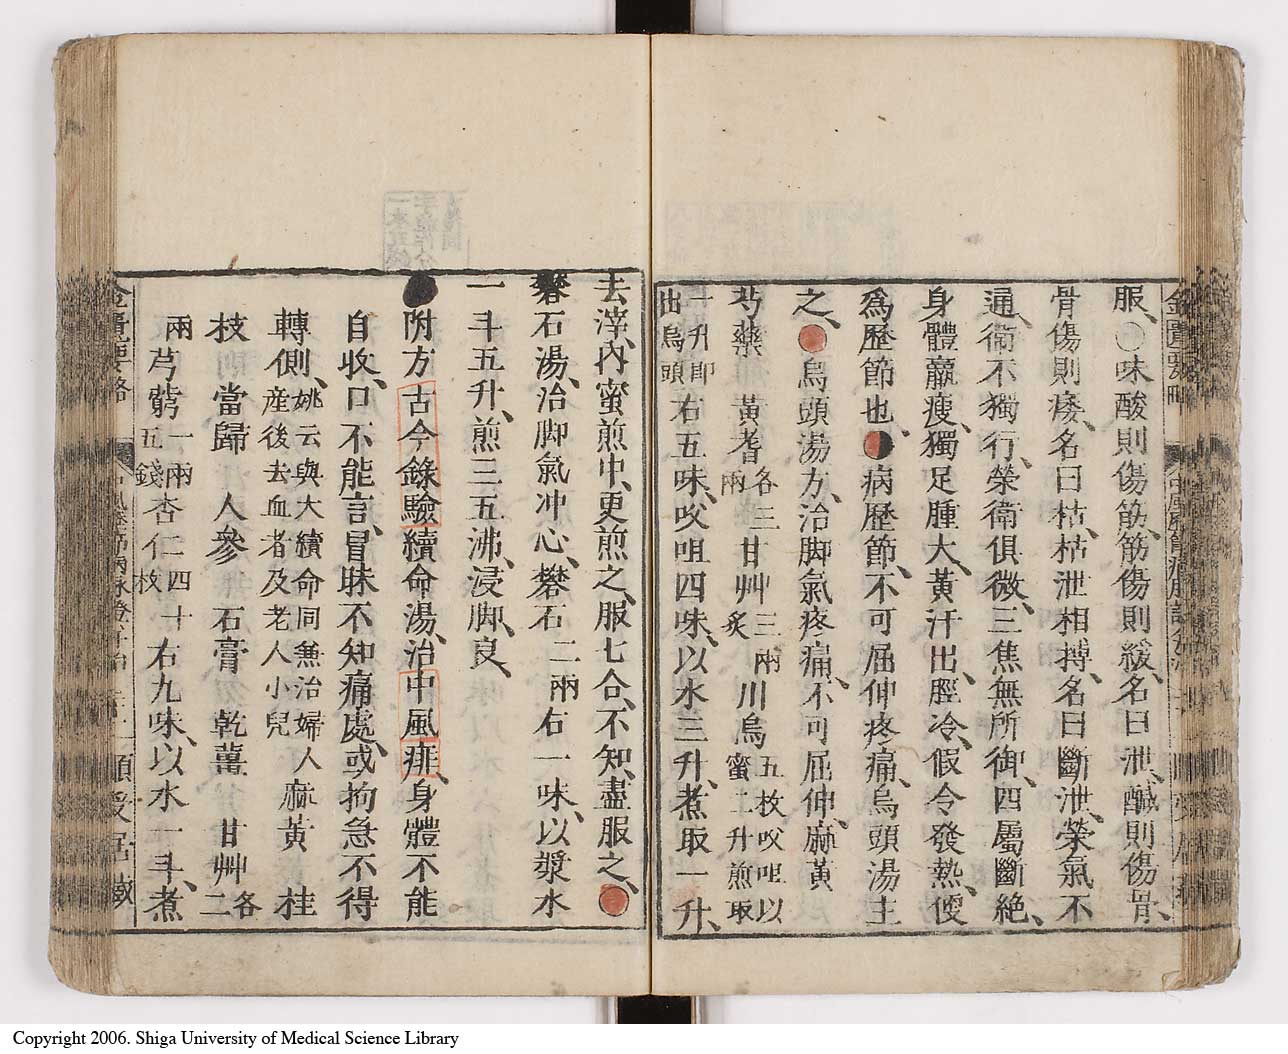 金匱要略
服○味酸則傷筋、筋傷則緩、名曰泄、鹹則傷骨、
骨傷則痿、名曰枯、枯泄相摶、名曰斷泄、榮氣不
通、衛不獨行、榮衛俱微、三焦無所御、四屬斷絶、
身體羸瘦、獨足腫大、黃汗出、脛冷、假令發熱、便
爲歷節也、病歷節、不可屈伸疼痛、烏頭湯主
之、烏頭湯方、治脚氣疼痛、不可屈伸、麻黃
芍藥 黃耆各三兩 甘艸三兩炙 川烏五枚㕮咀以蜜二升煎取
一升卽出烏頭 右五味、㕮咀四味、以水三升、煮取一升、
去滓、內蜜煎中、更煎之、服七合、不知、盡服之、
礬石湯、治脚氣冲心、礬石二兩 右一味、以漿水
一斗五升、煎三五沸、浸脚、良、
附方 古今錄驗續命湯、治中風痱、身體不能
自收、口不能言、冒昧不知痛處、或拘急不得
轉側、姚云與大續命同無治婦人產後去血者及老人小兒 麻黃 桂
枝 當歸 人參 石膏 乾薑 甘艸各二
兩 芎藭一兩五錢 杏仁四十枚 右九味、以水一斗、煮
金匱要略
Copyright 2006. Shiga University of Medical Science Library